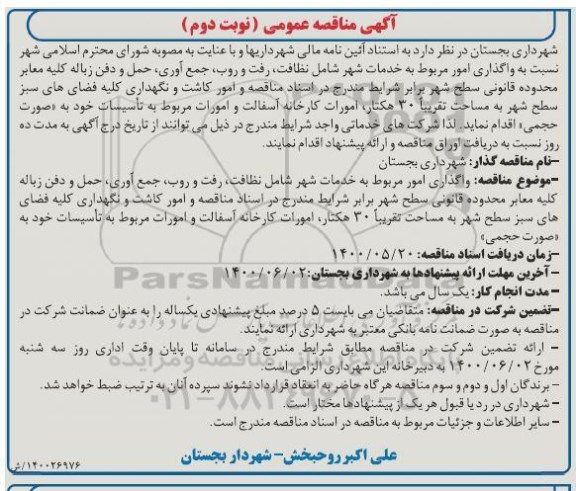 آگهی مناقصه عمومی (نوبت دوم)
شهرداری بجستان در نظر دارد به استناد آئین نامه مالی شهرداریها و با عنایت به مصوبه شورای محترم اسلامی شهر
نسبت به واگذاری امور مربوط به خدمات شهر شامل نظافت، رفت و روب، جمع آوری، حمل و دفن زباله کلیه معابر
محدوده قانونی سطح شهر برابر شرایط مندرج در اسناد مناقصه و امور کاشت و نگهداری کلیه فضای های سبز
سطح شهر به مساحت تقریباً ۳۰ هکتار، امورات کارخانه آسفالت و امورات مربوط به تأسیسات خود به «صورت
حجمی» اقدام نماید. لذا شرکت های خدماتی واجد شرایط مندرج در ذیل می توانند از تاریخ درج آگهی به مدت ده
روز نسبت به دریافت اوراق مناقصه و ارائه پیشنهاد اقدام نمایند.
-نام مناقصه گذار: شهرداری بجستان
-موضوع مناقصه: واگذاری امور مربوط به خدمات شهر شامل نظافت، رفت و روب، جمع آوری، حمل و دفن زباله
کلیه معابر محدوده قانونی سطح شهر برابر شرایط مندرج در اسناد مناقصه و امور کاشت و نگهداری کلیه فضای
های سبز سطح شهر به مساحت تقریباً ۳۰ هکتار، امورات کارخانه آسفالت و امورات مربوط به تأسیسات خود به
«صورت حجمی»
-زمان دریافت اسناد مناقصه: ۱۴۰۰/۰۵/۲۰
- آخرین مهلت ارائه پیشنهادها به شهرداری بجستان: ۱۴۰۰/۰۶/۰۲
- مدت انجام کار: یک سال می باشد.
-تضمین شرکت در مناقصه: متقاضیان می بایست ۵ درصد مبلغ پیشنهادی یکساله را به عنوان ضمانت شرکت در
مناقصه به صورت ضمانت نامه بانکی معتبر به شهرداری ارائه نمایند.
- ارائه تضمین شرکت در مناقصه مطابق شرایط مندرج در سامانه تا پایان وقت اداری روز سه شنبه
مورخ ۱۴۰۰/۰۶/۰۲ به دبیرخانه این شهرداری الزامی است.
- برندگان اول و دوم و سوم مناقصه هرگاه حاضر به انعقاد قرارداد نشوند سپرده آنان به ترتیب ضبط خواهد شد.
- شهرداری در رد یا قبول هر یک از پیشنهادها مختار است.
- سایر اطلاعات و جزئیات مربوط به مناقصه در اسناد مناقصه مندرج است.
علی اکبر روحبخش- شهردار بجستان
۱۴۰۰۲۶۹۷۶/ش
ParsNamadData
پایگاه اطلاع رسانی مناقصه و مزایده